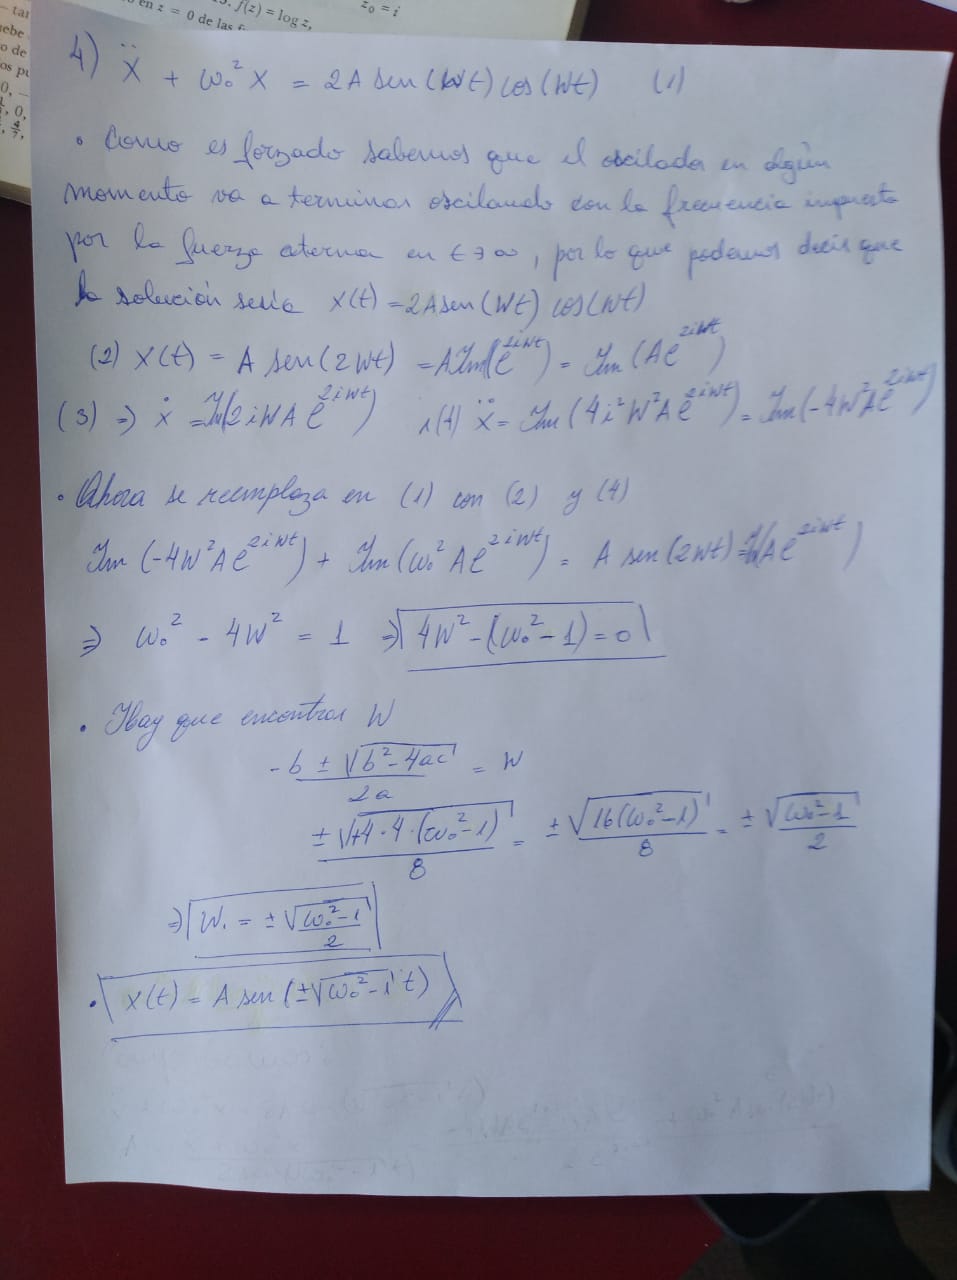 – tar
en z = 0 de las f
f(z) = log z,
z₀ = i
uebe
o de
os pu
0, –
, 0,
4) ẍ + ω₀² x = 2A sen(Wt) cos(Wt) (1)
• Como es forzado sabemos que el oscilador en algún
momento va a terminar oscilando con la frecuencia impuesta
por la fuerza externa en t→∞, por lo que podemos decir que
la solución sería x(t) = 2A sen(Wt) cos(Wt)
(2) x(t) = A sen(2Wt) = A Im(e^{2iWt}) = Im(Ae^{2iWt})
(3) ⇒ ẋ = Im(2iWA e^{2iWt}) ∧ (4) ẍ = Im(4i²W²A e^{2iWt}) = Im(-4W²Ae^{2iWt})
• Ahora se reemplaza en (1) con (2) y (4)
Im(-4W²Ae^{2iWt}) + Im(ω₀² Ae^{2iWt}) = A sen(2Wt) = Im(Ae^{2iWt})
⇒ ω₀² - 4W² = 1 ⇒ 4W² - (ω₀² - 1) = 0
• Hay que encontrar W
(-b ± √(b² - 4ac))/2a = W
±√(+4·4·(ω₀²-1))/8 = ±√(16(ω₀²-1))/8 = ±√(ω₀²-1)/2
⇒ W. = ±√(ω₀²-1)/2
• x(t) = A sen(±√(ω₀²-1) t)